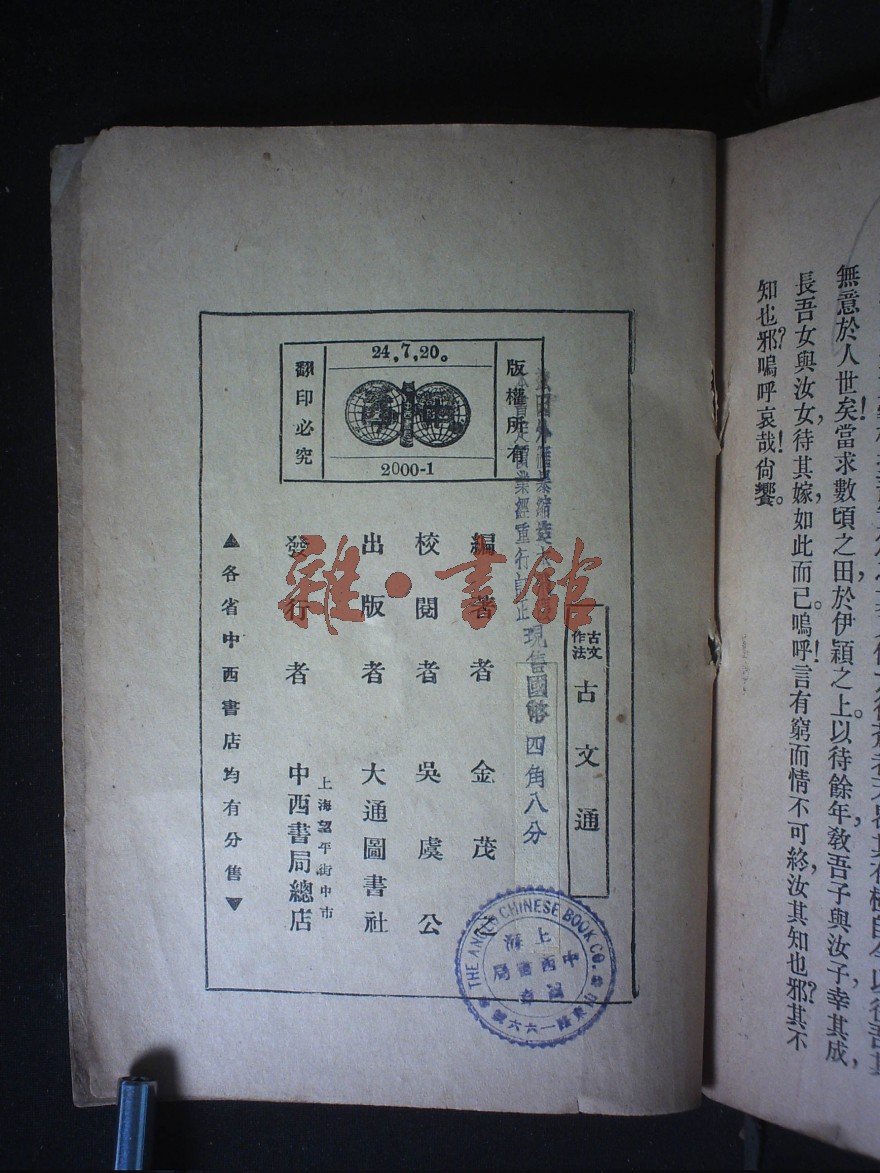 無意於人世矣!當求數頃之田於伊潁之上,以待餘年。教吾子與汝子,幸其成,
長吾女與汝女,待其嫁,如此而已。嗚呼!言有窮而情不可終,汝其知也邪?其不
知也邪?嗚呼哀哉!尙饗。
古文作法
古文通
現售國幣四角八分
編著者 金茂之
校閱者 吳虞公
出版者 大通圖書社
發行者 上海望平街中市 中西書局總店
▲各省中西書店均有分售▼
版權所有
24,7,20。
2000-1
翻印必究
雜·書館
THE ANGLO CHINESE BOOK CO.
上海
中西書局